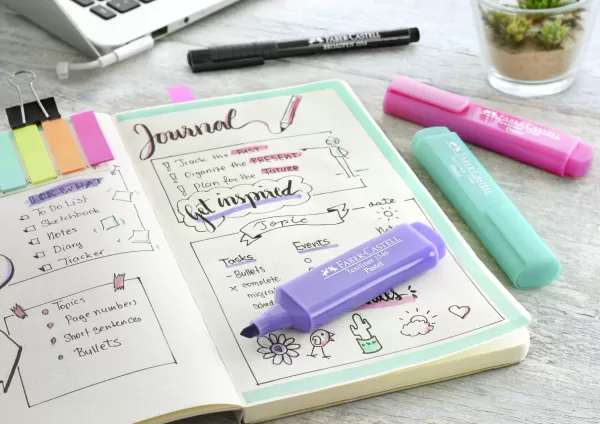 To Do List
Sketchbook
Notes
Diary
Tracker
Topics
Page numbers
Short sentences
Bullets
Journal
Track the PAST
Organize the PRESENT
Plan for the FUTURE
Get inspired
Topic
date
Tasks
Events
- Bullets
x complete
FABER-CASTELL
Textliner 1546
Pastel
FABER-CASTELL
BROADPEN 1554
FABER-CASTELL
Pastel
FABER-CASTELL
Pastel